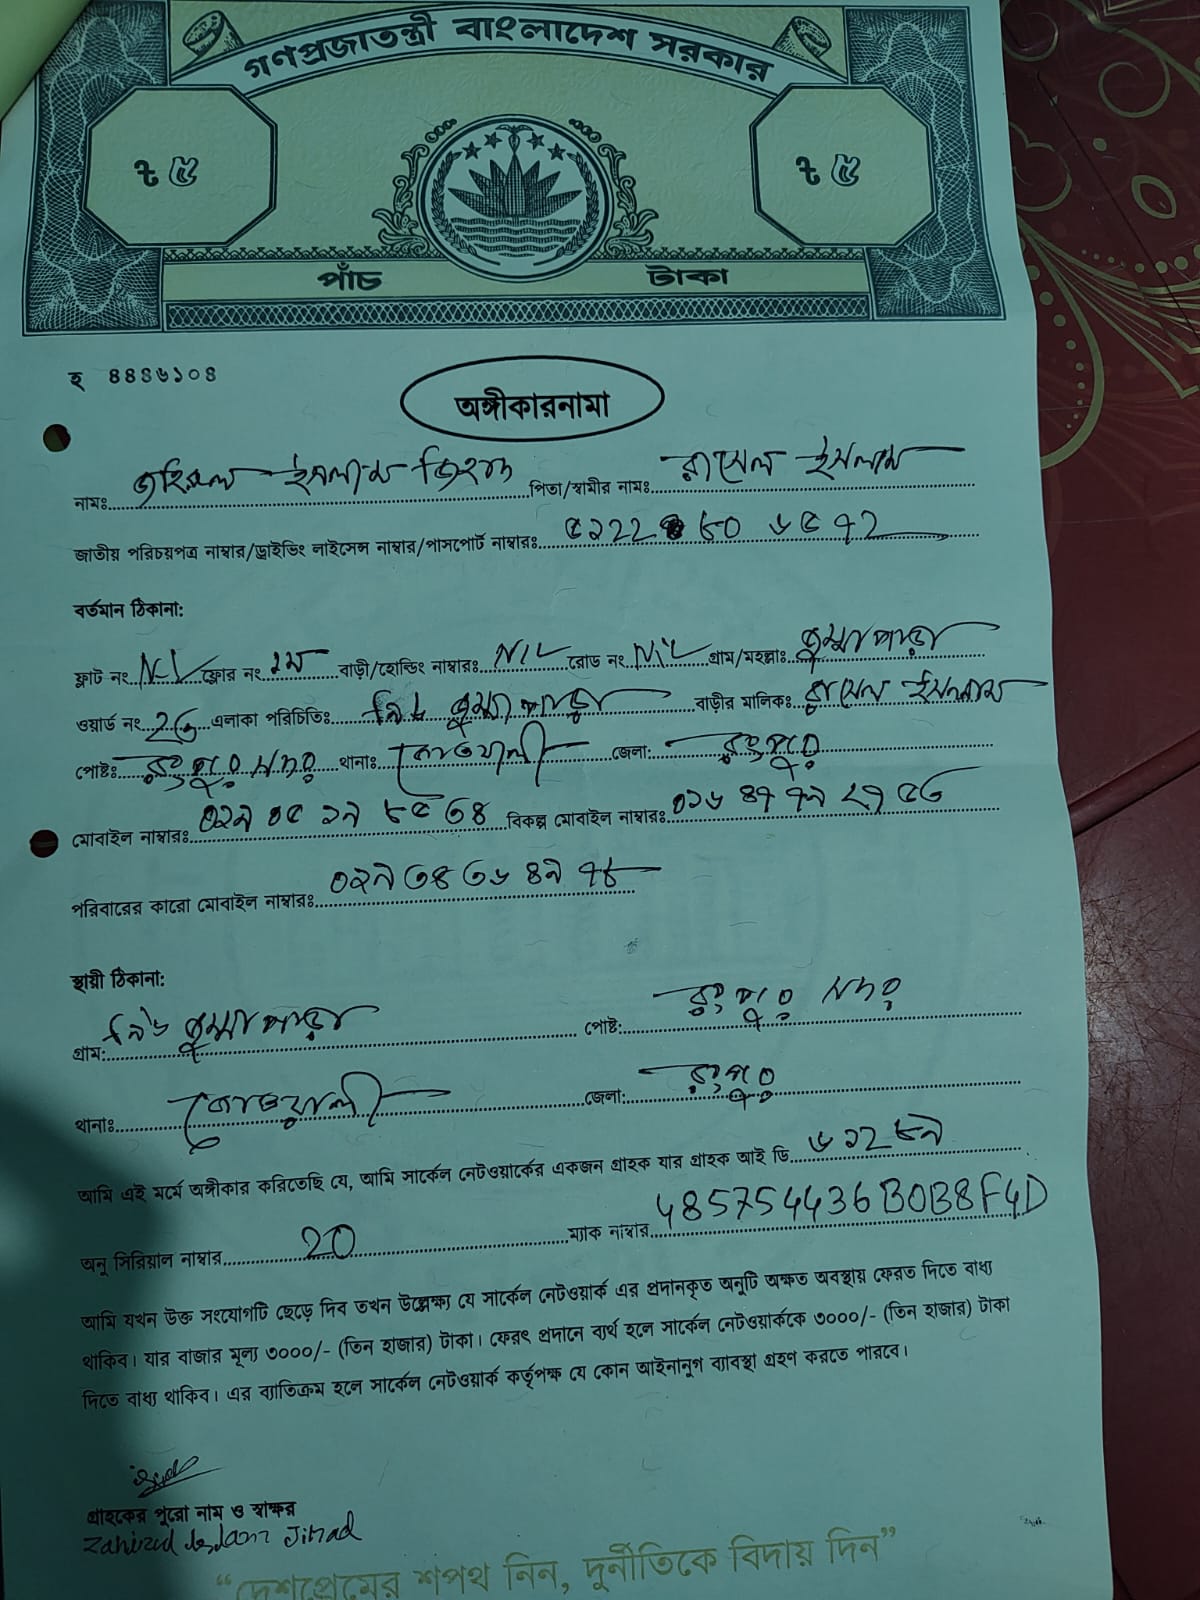 গণপ্রজাতন্ত্রী বাংলাদেশ সরকার
৳ ৫ ৳ ৫
পাঁচ টাকা
হ ৪৪৪৬১০৪
অঙ্গীকারনামা
নামঃ জহিরুল ইসলাম জিহাদ পিতা/স্বামীর নামঃ রাসেল ইসলাম
জাতীয় পরিচয়পত্র নাম্বার/ড্রাইভিং লাইসেন্স নাম্বার/পাসপোর্ট নাম্বারঃ
বর্তমান ঠিকানা:
ফ্লাট নং ফ্লোর নং ১ম বাড়ী/হোল্ডিং নাম্বারঃ NIL রোড নং NIL গ্রাম/মহল্লাঃ
ওয়ার্ড নং এলাকা পরিচিতিঃ বাড়ীর মালিকঃ রাসেল ইসলাম
পোষ্টঃ রংপুর সদর থানাঃ কোতয়ালী জেলা: রংপুর
মোবাইল নাম্বারঃ বিকল্প মোবাইল নাম্বারঃ
পরিবারের কারো মোবাইল নাম্বারঃ
স্থায়ী ঠিকানা:
গ্রাম: পোষ্ট: রংপুর সদর
থানাঃ কোতয়ালী জেলা: রংপুর
আমি এই মর্মে অঙ্গীকার করিতেছি যে, আমি সার্কেল নেটওয়ার্কের একজন গ্রাহক যার গ্রাহক আই ডি ৬১২৮৯
অনু সিরিয়াল নাম্বার 20 ম্যাক নাম্বার 485754436B0B8F4D
আমি যখন উক্ত সংযোগটি ছেড়ে দিব তখন উল্লেক্ষ্য যে সার্কেল নেটওয়ার্ক এর প্রদানকৃত অনুটি অক্ষত অবস্থায় ফেরত দিতে বাধ্য
থাকিব। যার বাজার মূল্য ৩০০০/- (তিন হাজার) টাকা। ফেরৎ প্রদানে ব্যর্থ হলে সার্কেল নেটওয়ার্ককে ৩০০০/- (তিন হাজার) টাকা
দিতে বাধ্য থাকিব। এর ব্যাতিক্রম হলে সার্কেল নেটওয়ার্ক কর্তৃপক্ষ যে কোন আইনানুগ ব্যাবস্থা গ্রহণ করতে পারবে।
গ্রাহকের পুরো নাম ও স্বাক্ষর
Jihad
“দেশপ্রেমের শপথ নিন, দুর্নীতিকে বিদায় দিন”